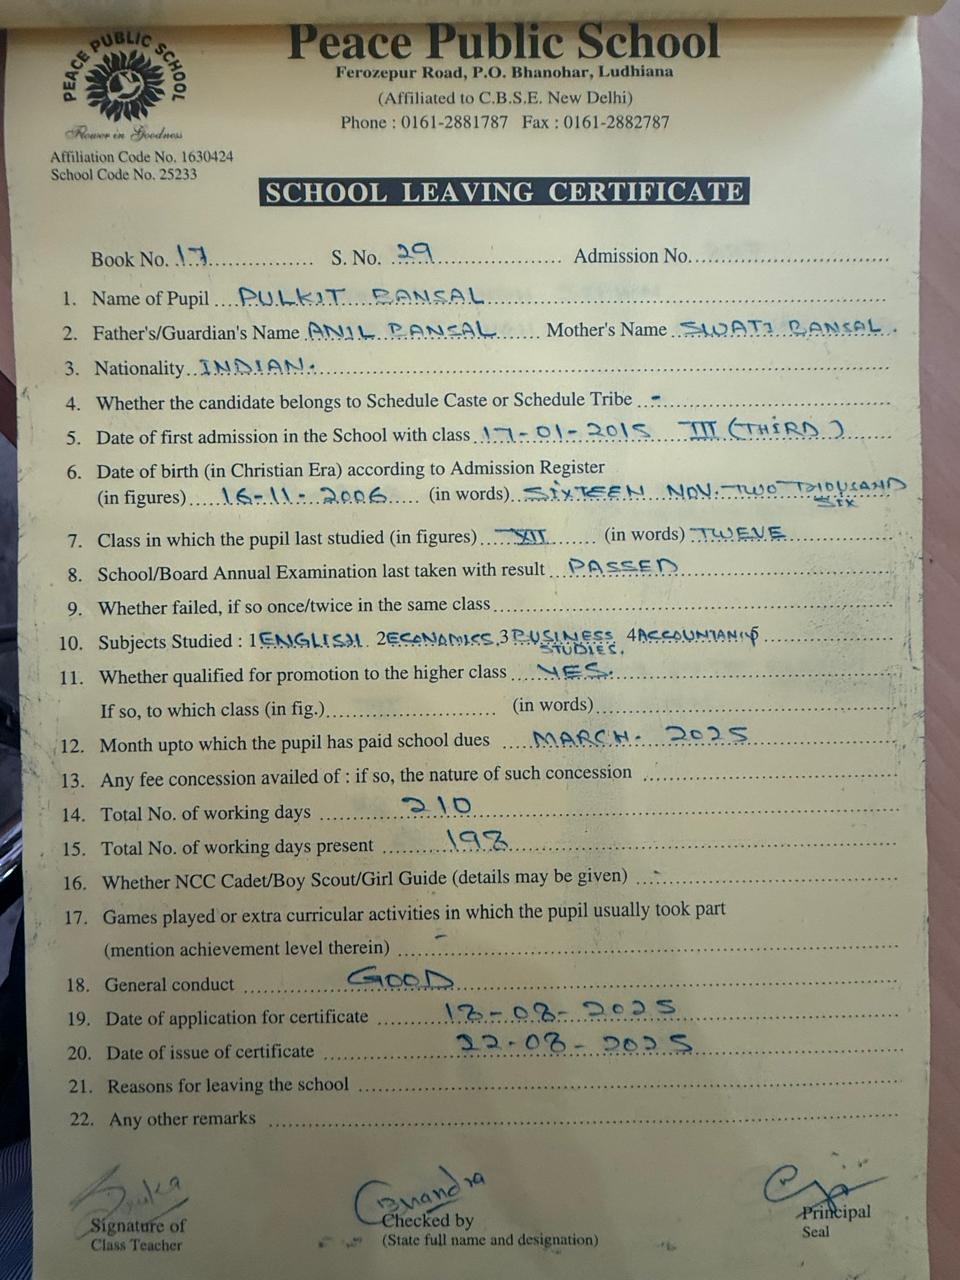 PEACE PUBLIC SCHOOL
Flower in Goodness
Affiliation Code No. 1630424
School Code No. 25233
Peace Public School
Ferozepur Road, P.O. Bhanohar, Ludhiana
(Affiliated to C.B.S.E. New Delhi)
Phone : 0161-2881787 Fax : 0161-2882787
SCHOOL LEAVING CERTIFICATE
Book No. 17 S. No. 29 Admission No.
1. Name of Pupil PULKIT BANSAL
2. Father's/Guardian's Name ANIL BANSAL Mother's Name SWATI BANSAL.
3. Nationality INDIAN.
4. Whether the candidate belongs to Schedule Caste or Schedule Tribe -
5. Date of first admission in the School with class 17-01-2015 III (THIRD)
6. Date of birth (in Christian Era) according to Admission Register
(in figures) 16-11-2006 (in words) SIXTEEN NOV. TWO THOUSAND
SIX
7. Class in which the pupil last studied (in figures) XII (in words) TWEVE
8. School/Board Annual Examination last taken with result PASSED
9. Whether failed, if so once/twice in the same class
10. Subjects Studied : 1 ENGLISH 2 ECONOMICS, 3 BUSINESS 4 ACCOUNTANCY
STUDIES.
11. Whether qualified for promotion to the higher class YES.
If so, to which class (in fig.) (in words)
12. Month upto which the pupil has paid school dues MARCH- 2025
13. Any fee concession availed of : if so, the nature of such concession
14. Total No. of working days 210
15. Total No. of working days present 198
16. Whether NCC Cadet/Boy Scout/Girl Guide (details may be given) -
17. Games played or extra curricular activities in which the pupil usually took part
(mention achievement level therein) -
18. General conduct GOOD
19. Date of application for certificate 18-08-2025
20. Date of issue of certificate 22-08-2025
21. Reasons for leaving the school
22. Any other remarks
Chandra
Signature of
Class Teacher
Checked by
(State full name and designation)
Principal
Seal